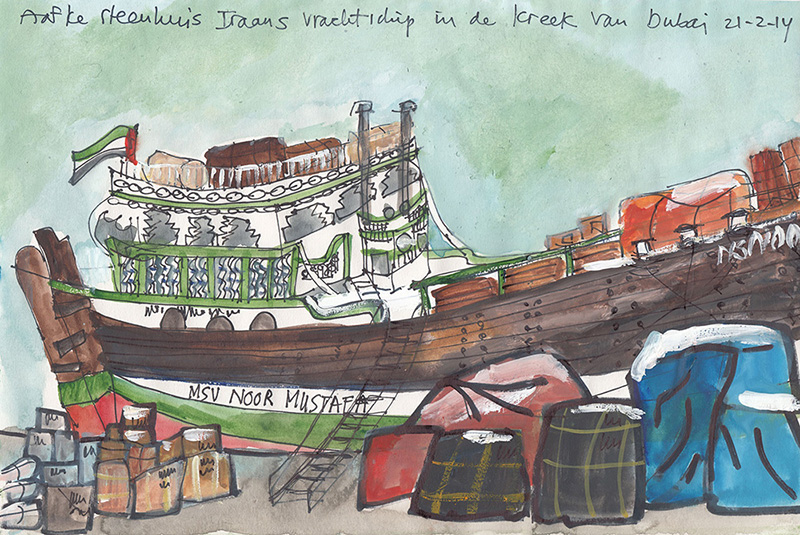 Aafke Steenhuis Iraans vrachtschip in de kreek van Dubai 21-2-14
MSV NOOR
MSV NOOR MUSTAFA